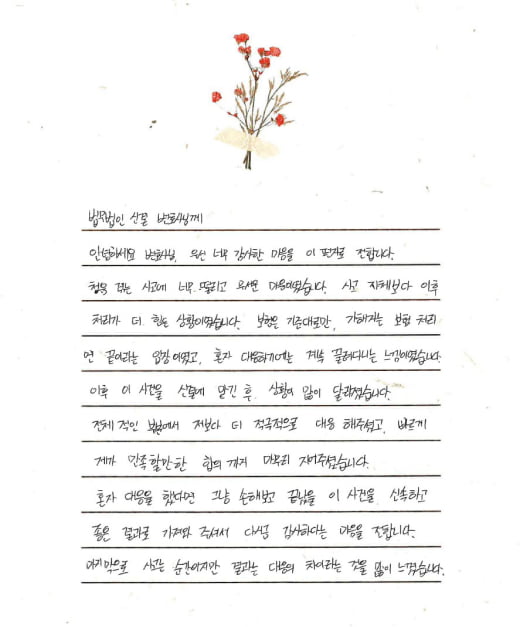 법무법인 산꼴 변호사님께
안녕하세요 변호사님, 우선 너무 감사한 마음을 이 편지로 전합니다.
처음 겪는 사고에 너무 떨리고 무서운 마음이었습니다. 사고 자체보다 이후
처리가 더 힘든 상황이였습니다. 보험은 기준대로만, 가해자는 보험 처리
면 끝이라는 입장이였고, 혼자 대응하기에는 계속 끌려다니는 느낌이였습니다.
이후 이 사건을 맡긴 후 상황이 많이 달라졌습니다.
전체적인 부분에서 저보다 더 적극적으로 대응 해주셨고, 빠르게
제가 만족할만한 합의까지 마무리 지어주셨습니다.
혼자 대응을 했다면 그냥 손해보고 끝났을 이 사건을 신속하고
좋은 결과로 가져와 주셔서 다시금 감사하다는 마음을 전합니다.
마지막으로 사고는 순간이지만 결과는 대응의 차이라는 것을 많이 느꼈습니다.